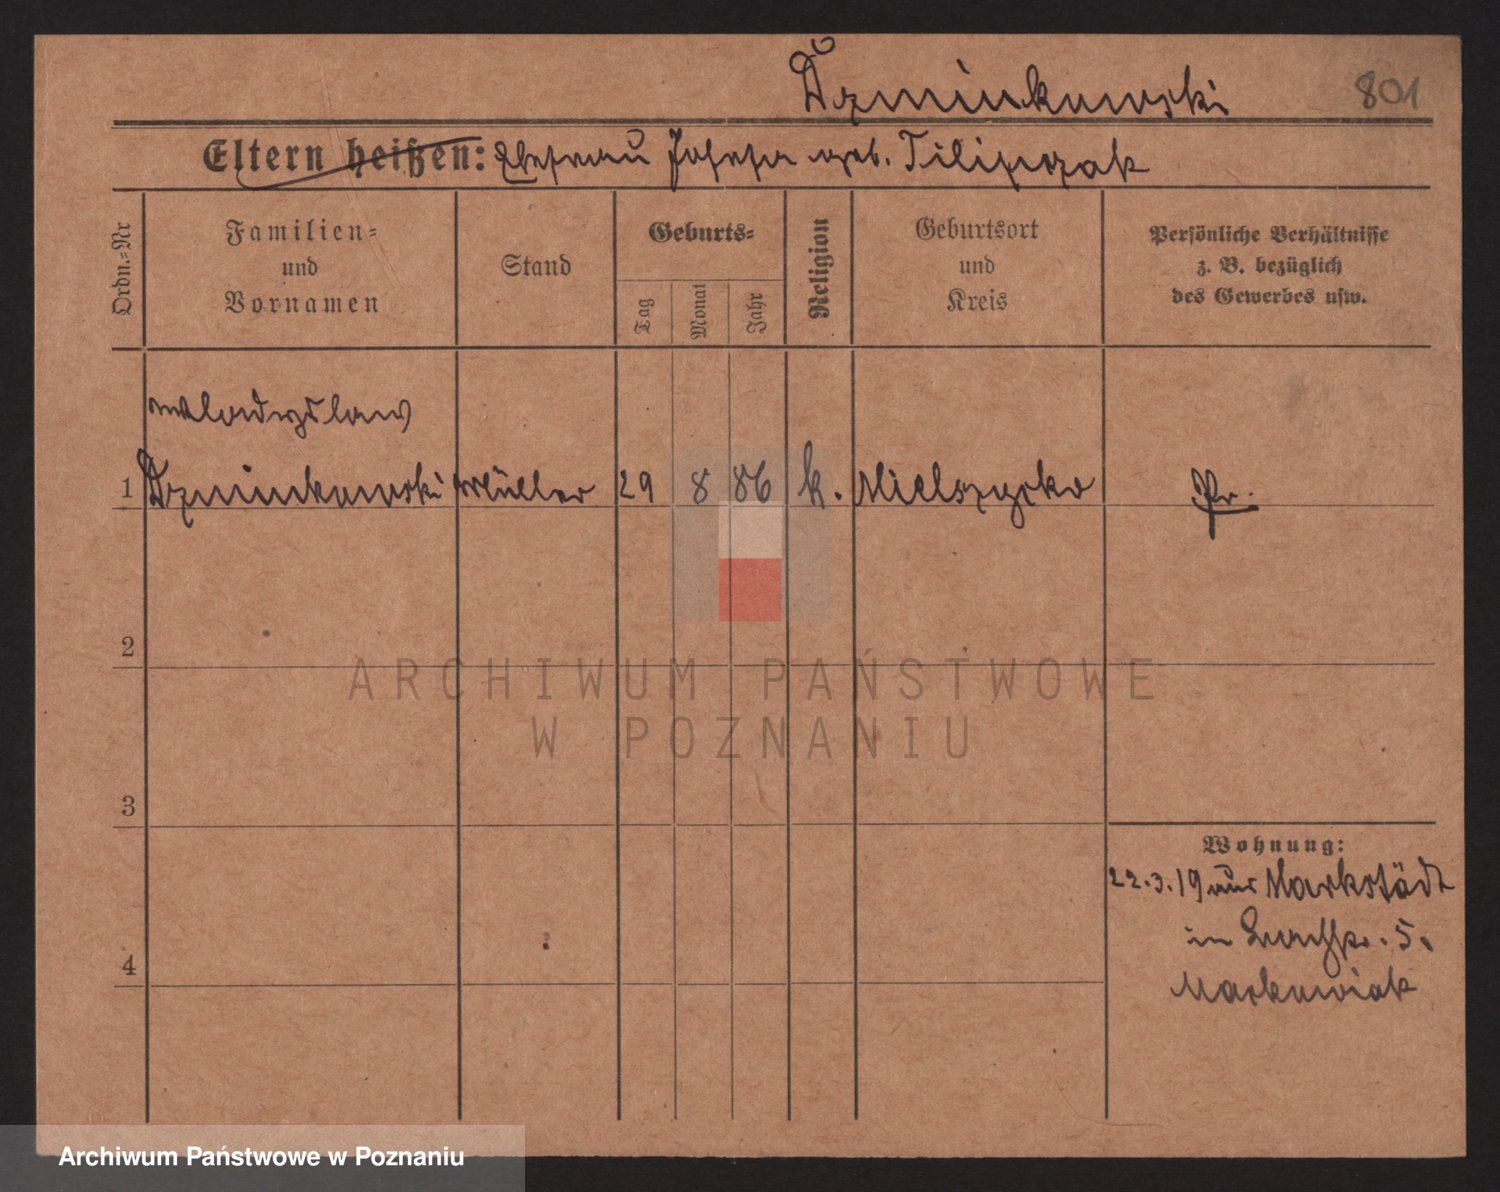 Dzminkowski
801
Eltern heißen: Ehefrau Josefa geb. Filipczak
Ordn.-Nr
Familien=
und
Vornamen
Stand
Geburts=
Tag
Monat
Jahr
Religion
Geburtsort
und
Kreis
Persönliche Verhältnisse
z. B. bezüglich
des Gewerbes usw.
Wladyslaw
1 Dzminkowski Müller 29 8 86 k. Mielszyko Pr.
2
ARCHIWUM PAŃSTWOWE
W POZNANIU
3
Wohnung:
22.3.19 aus Markstädt
in 5.
4
Markowiak
Archiwum Państwowe w Poznaniu